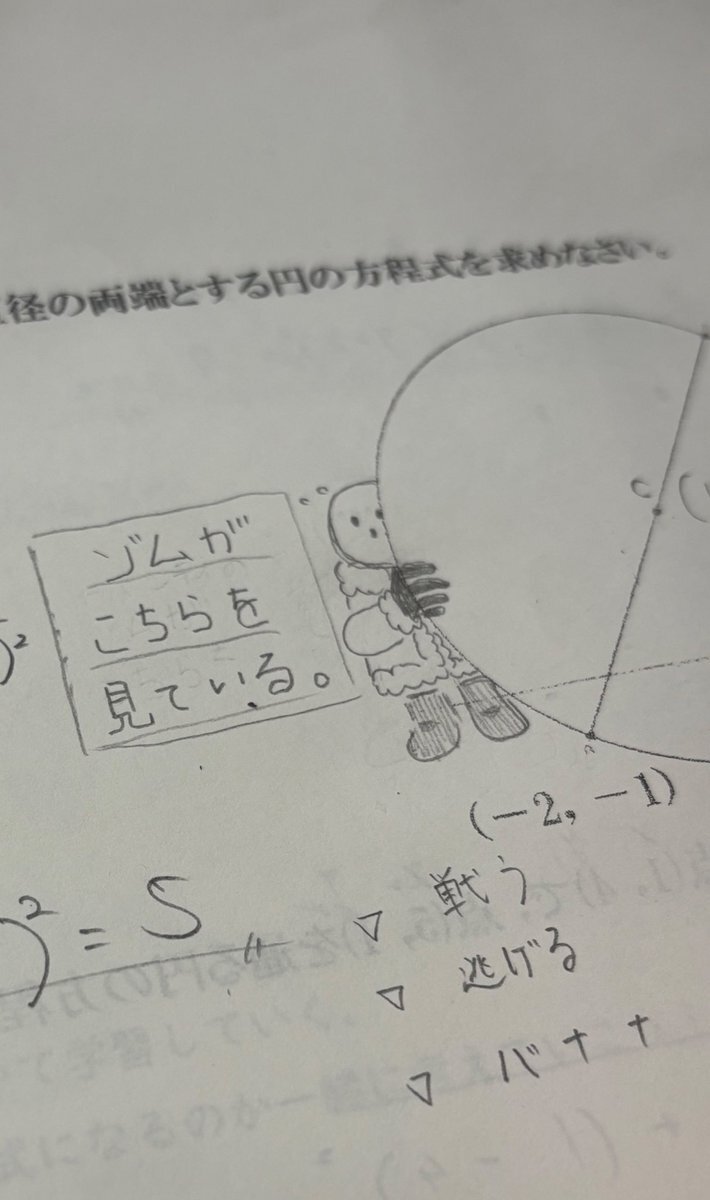 径の両端とする円の方程式を求めなさい。
ゾムが
こちらを
見ている。
)²
C (
(-2, -1)
)² = 5
▽ 戦う
▽ 逃げる
▽ バナナ